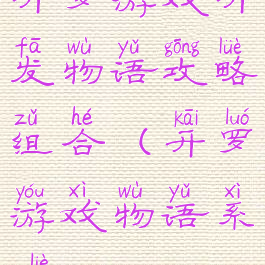 游戏
fā wù yǔ gōng lüè
发物语攻略
zǔ hé kāi luó
组合（开罗
yóu xì wù yǔ xì
游戏物语系
liè